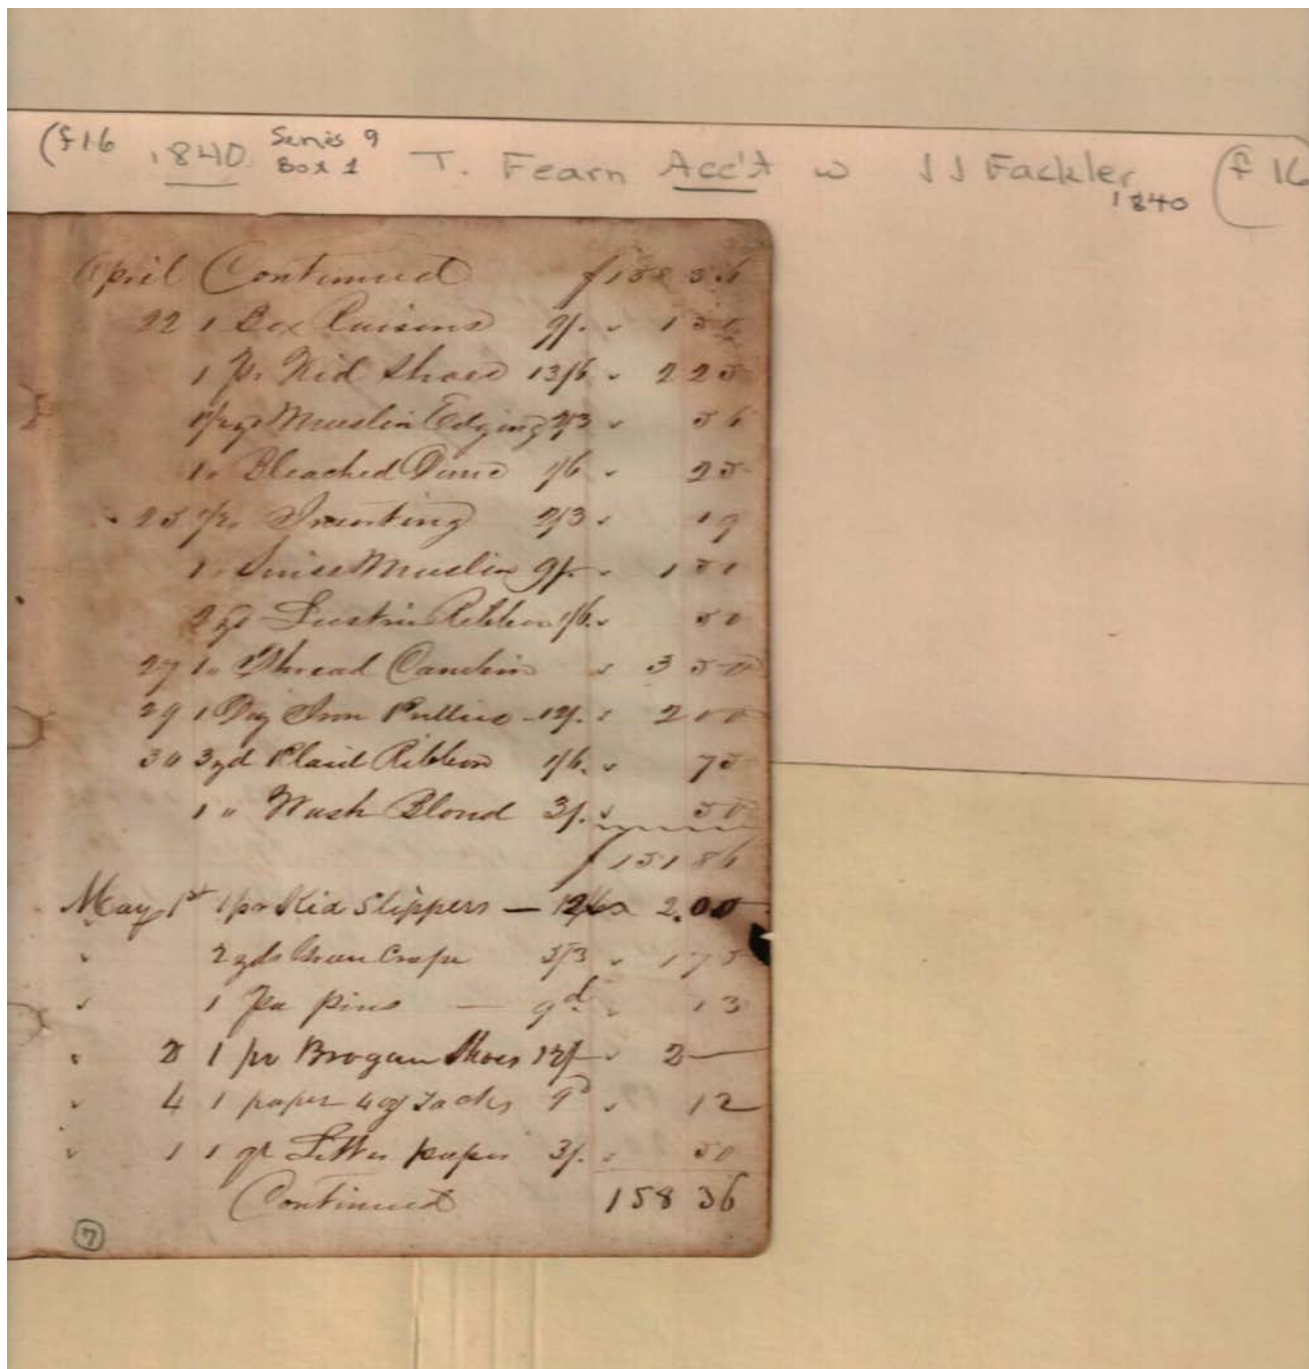 (f16 1840 Series 9 Box 1 T. Fearn Acc't w J J Fackler 1840 (f 16
April Continued $138 36
22 1 Box Raisins 9/. " 1 50
1 Pr Kid Shoes 13/6 " 2 25
Muslin Edging 2/3 " 56
1 " Bleached 1/6 " 25
25 1/2 " 2/3 " 19
1 " Swiss Muslin 9/- " 1 50
2 yd Ribbon 1/6 " 50
27 1 " Thread " 3 50
29 1 Iron 12/. " 2 00
30 3 yd Plaid Ribbon 1/6. " 75
1 " Wash Blond 3/. " 50
$151 86
May 1st 1 pr Kid Slippers — 12/ 2.00
" 2 yds Crape 5/3 " 1 75
" 1 Pa pins — 9d. " 13
" 2 1 pr Brogan Shoes 12/- " 2 —
" 4 1 paper 4 oz Tacks 9d " 12
" 1 1 qr Letter paper 3/. " 50
Continued 158 36
7